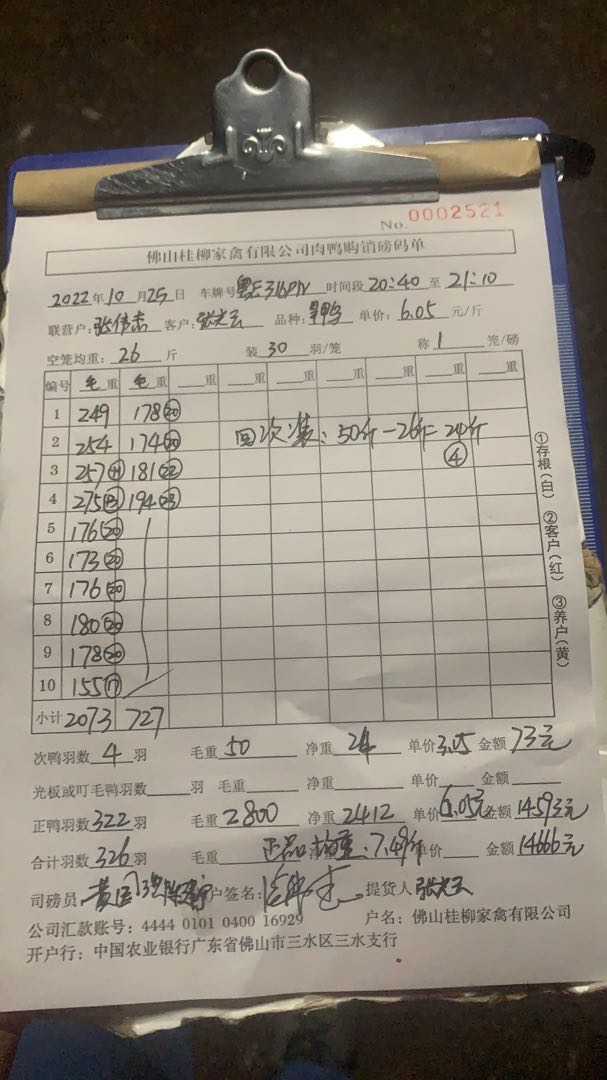 No. 0002521
佛山桂柳家禽有限公司肉鸭购销磅码单
2022年10月25日 车牌号 时间段20:40至21:10
联营户: 客户: 品种: 单价:6.05元/斤
空笼均重:26斤 装30羽/笼 称1笼/磅
编号 毛重 毛重 重 重 重 重 重 重
1 249 178⑳
2 254 174⑳ 回次准:50斤-26斤=24斤
3 257 181㉒ ④
4 275 194㉓
5 176⑳
6 173⑳
7 176⑳
8 180⑳
9 178⑳
10 155⑰
小计 2073 727
①存根(白) ②客户(红) ③养户(黄)
次鸭羽数4羽 毛重50 净重24 单价3.05 金额73元
光板或叮毛鸭羽数 羽 毛重 净重 单价 金额
正鸭羽数322羽 毛重2800 净重2412 单价6.05元 金额14593元
合计羽数326羽 毛重 正品均重:7.49斤 单价 金额14666元
司磅员 户签名: 提货人
公司汇款账号:4444 0101 0400 16929 户名:佛山桂柳家禽有限公司
开户行:中国农业银行广东省佛山市三水区三水支行